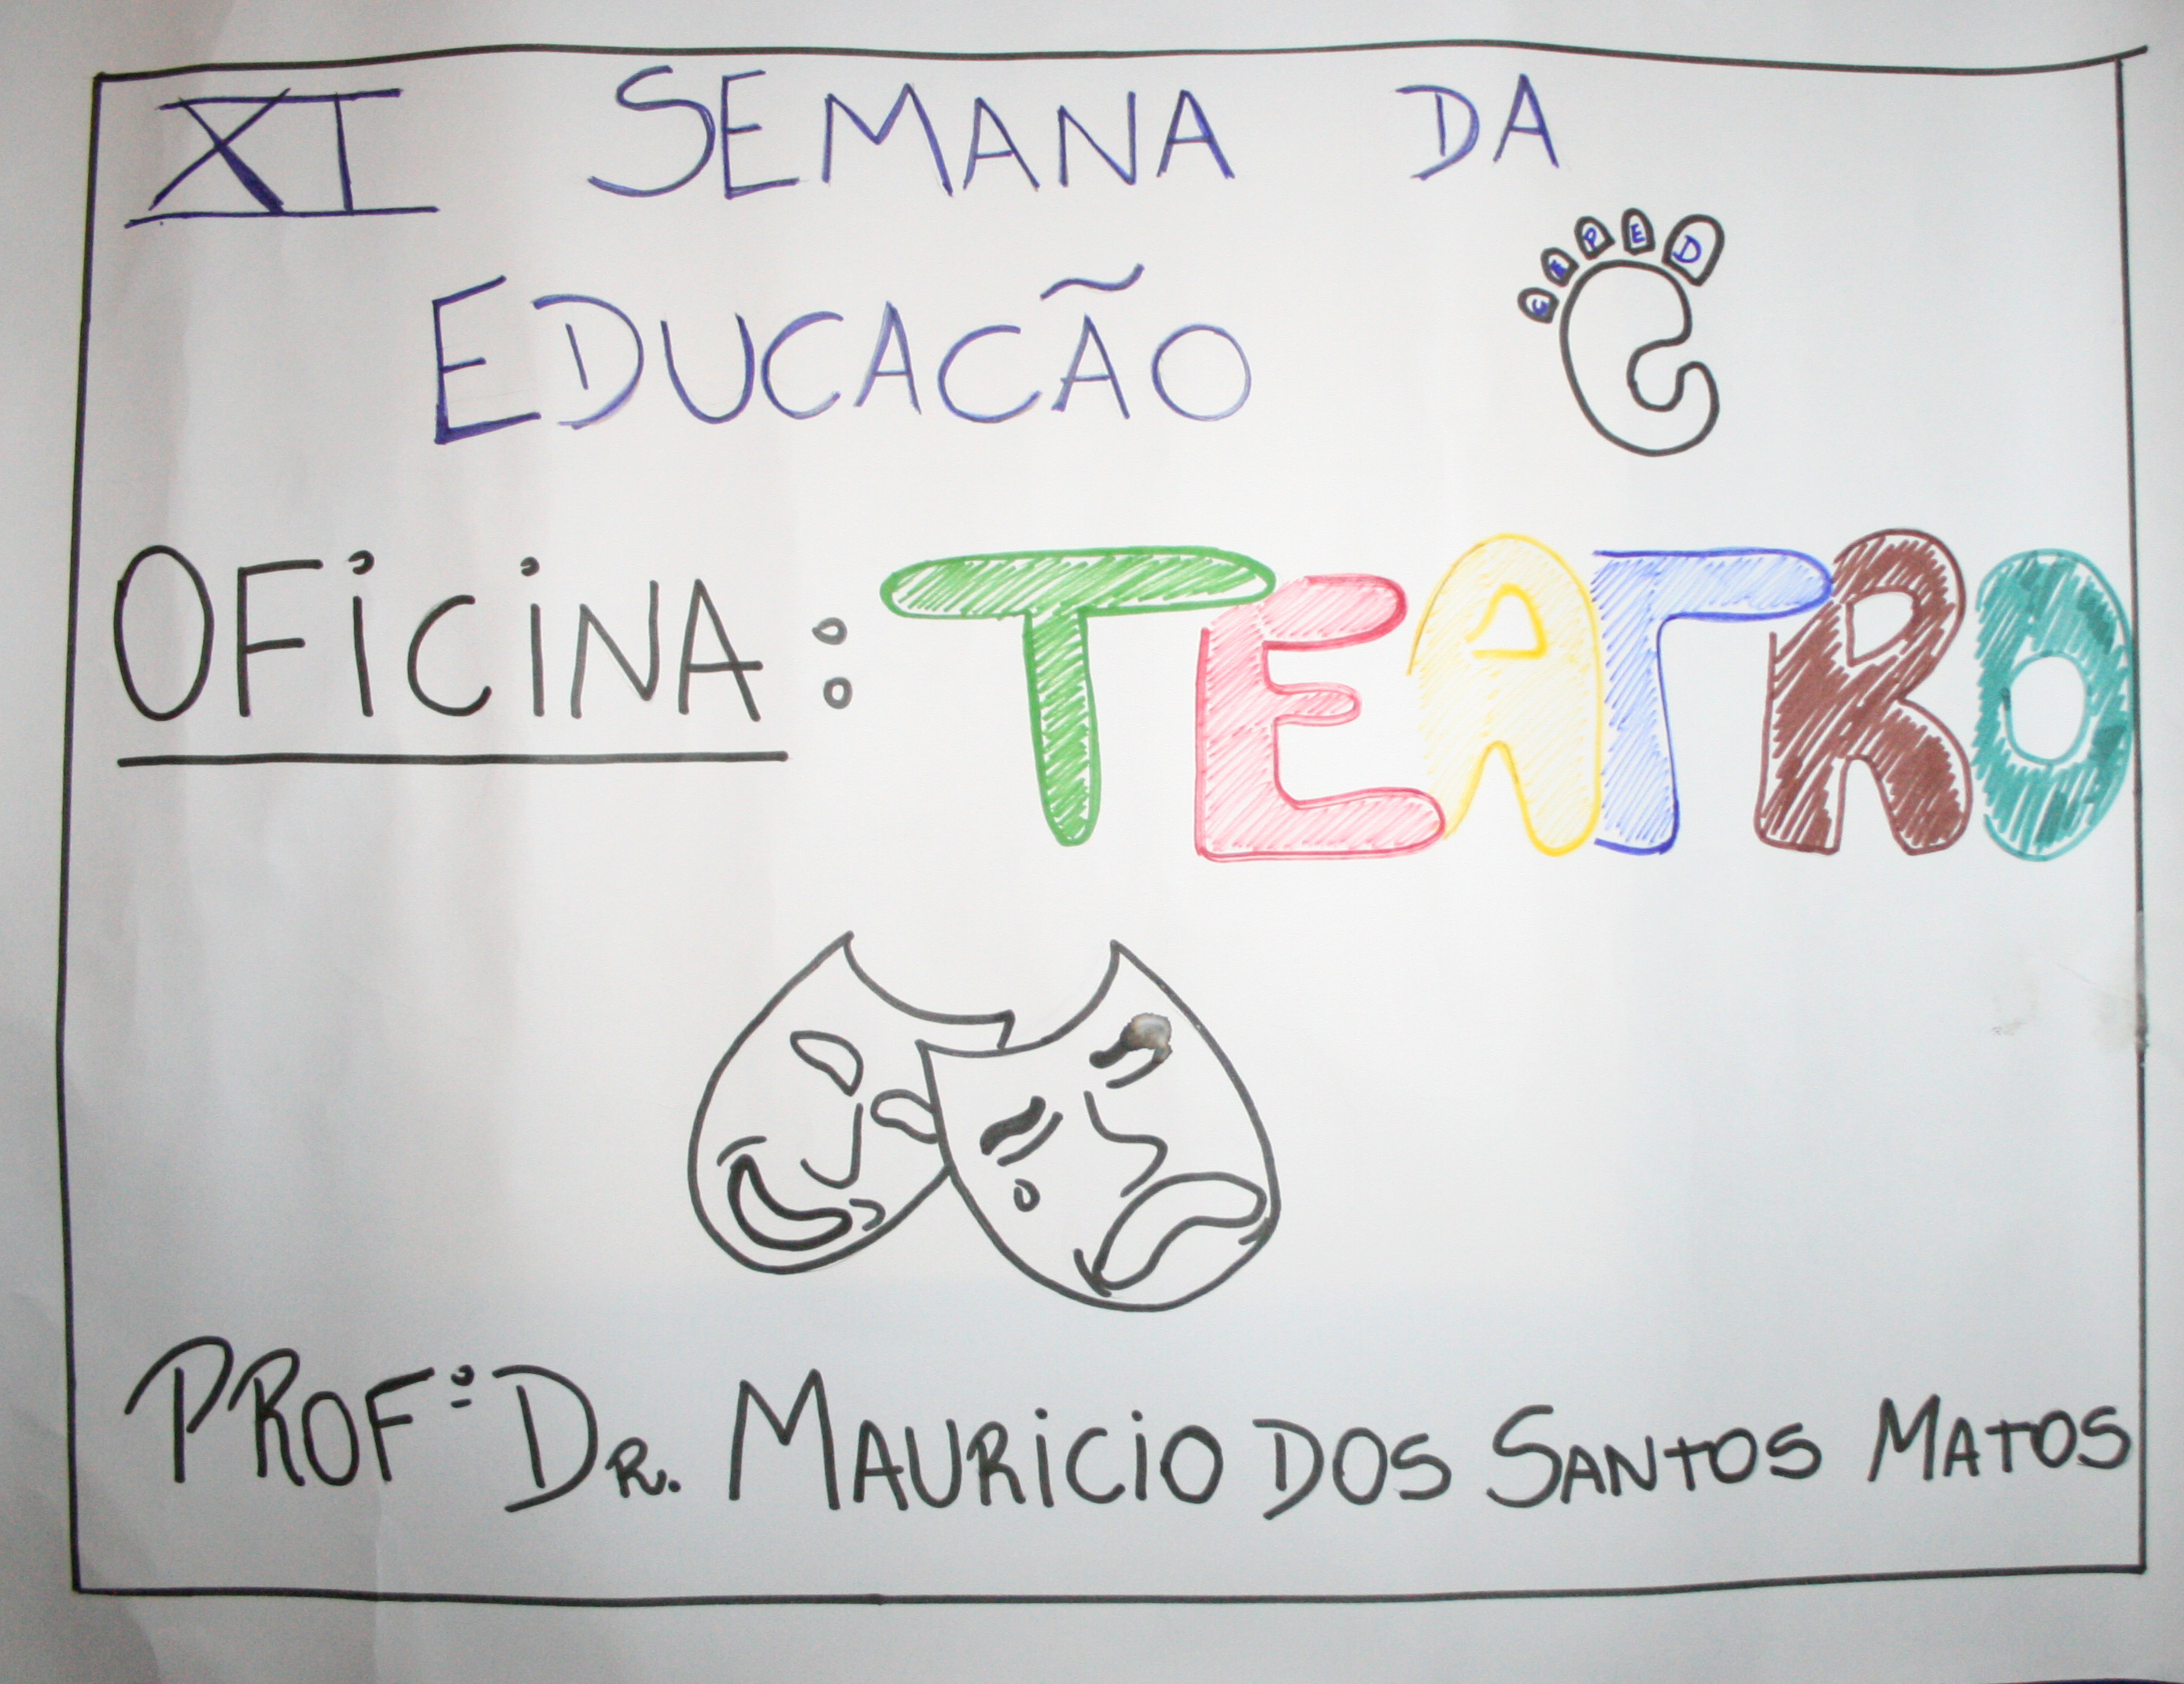 XI SEMANA DA
EDUCACÃO
PED
OFICINA: TEATRO
PROFº DR. MAURICIO DOS SANTOS MATOS